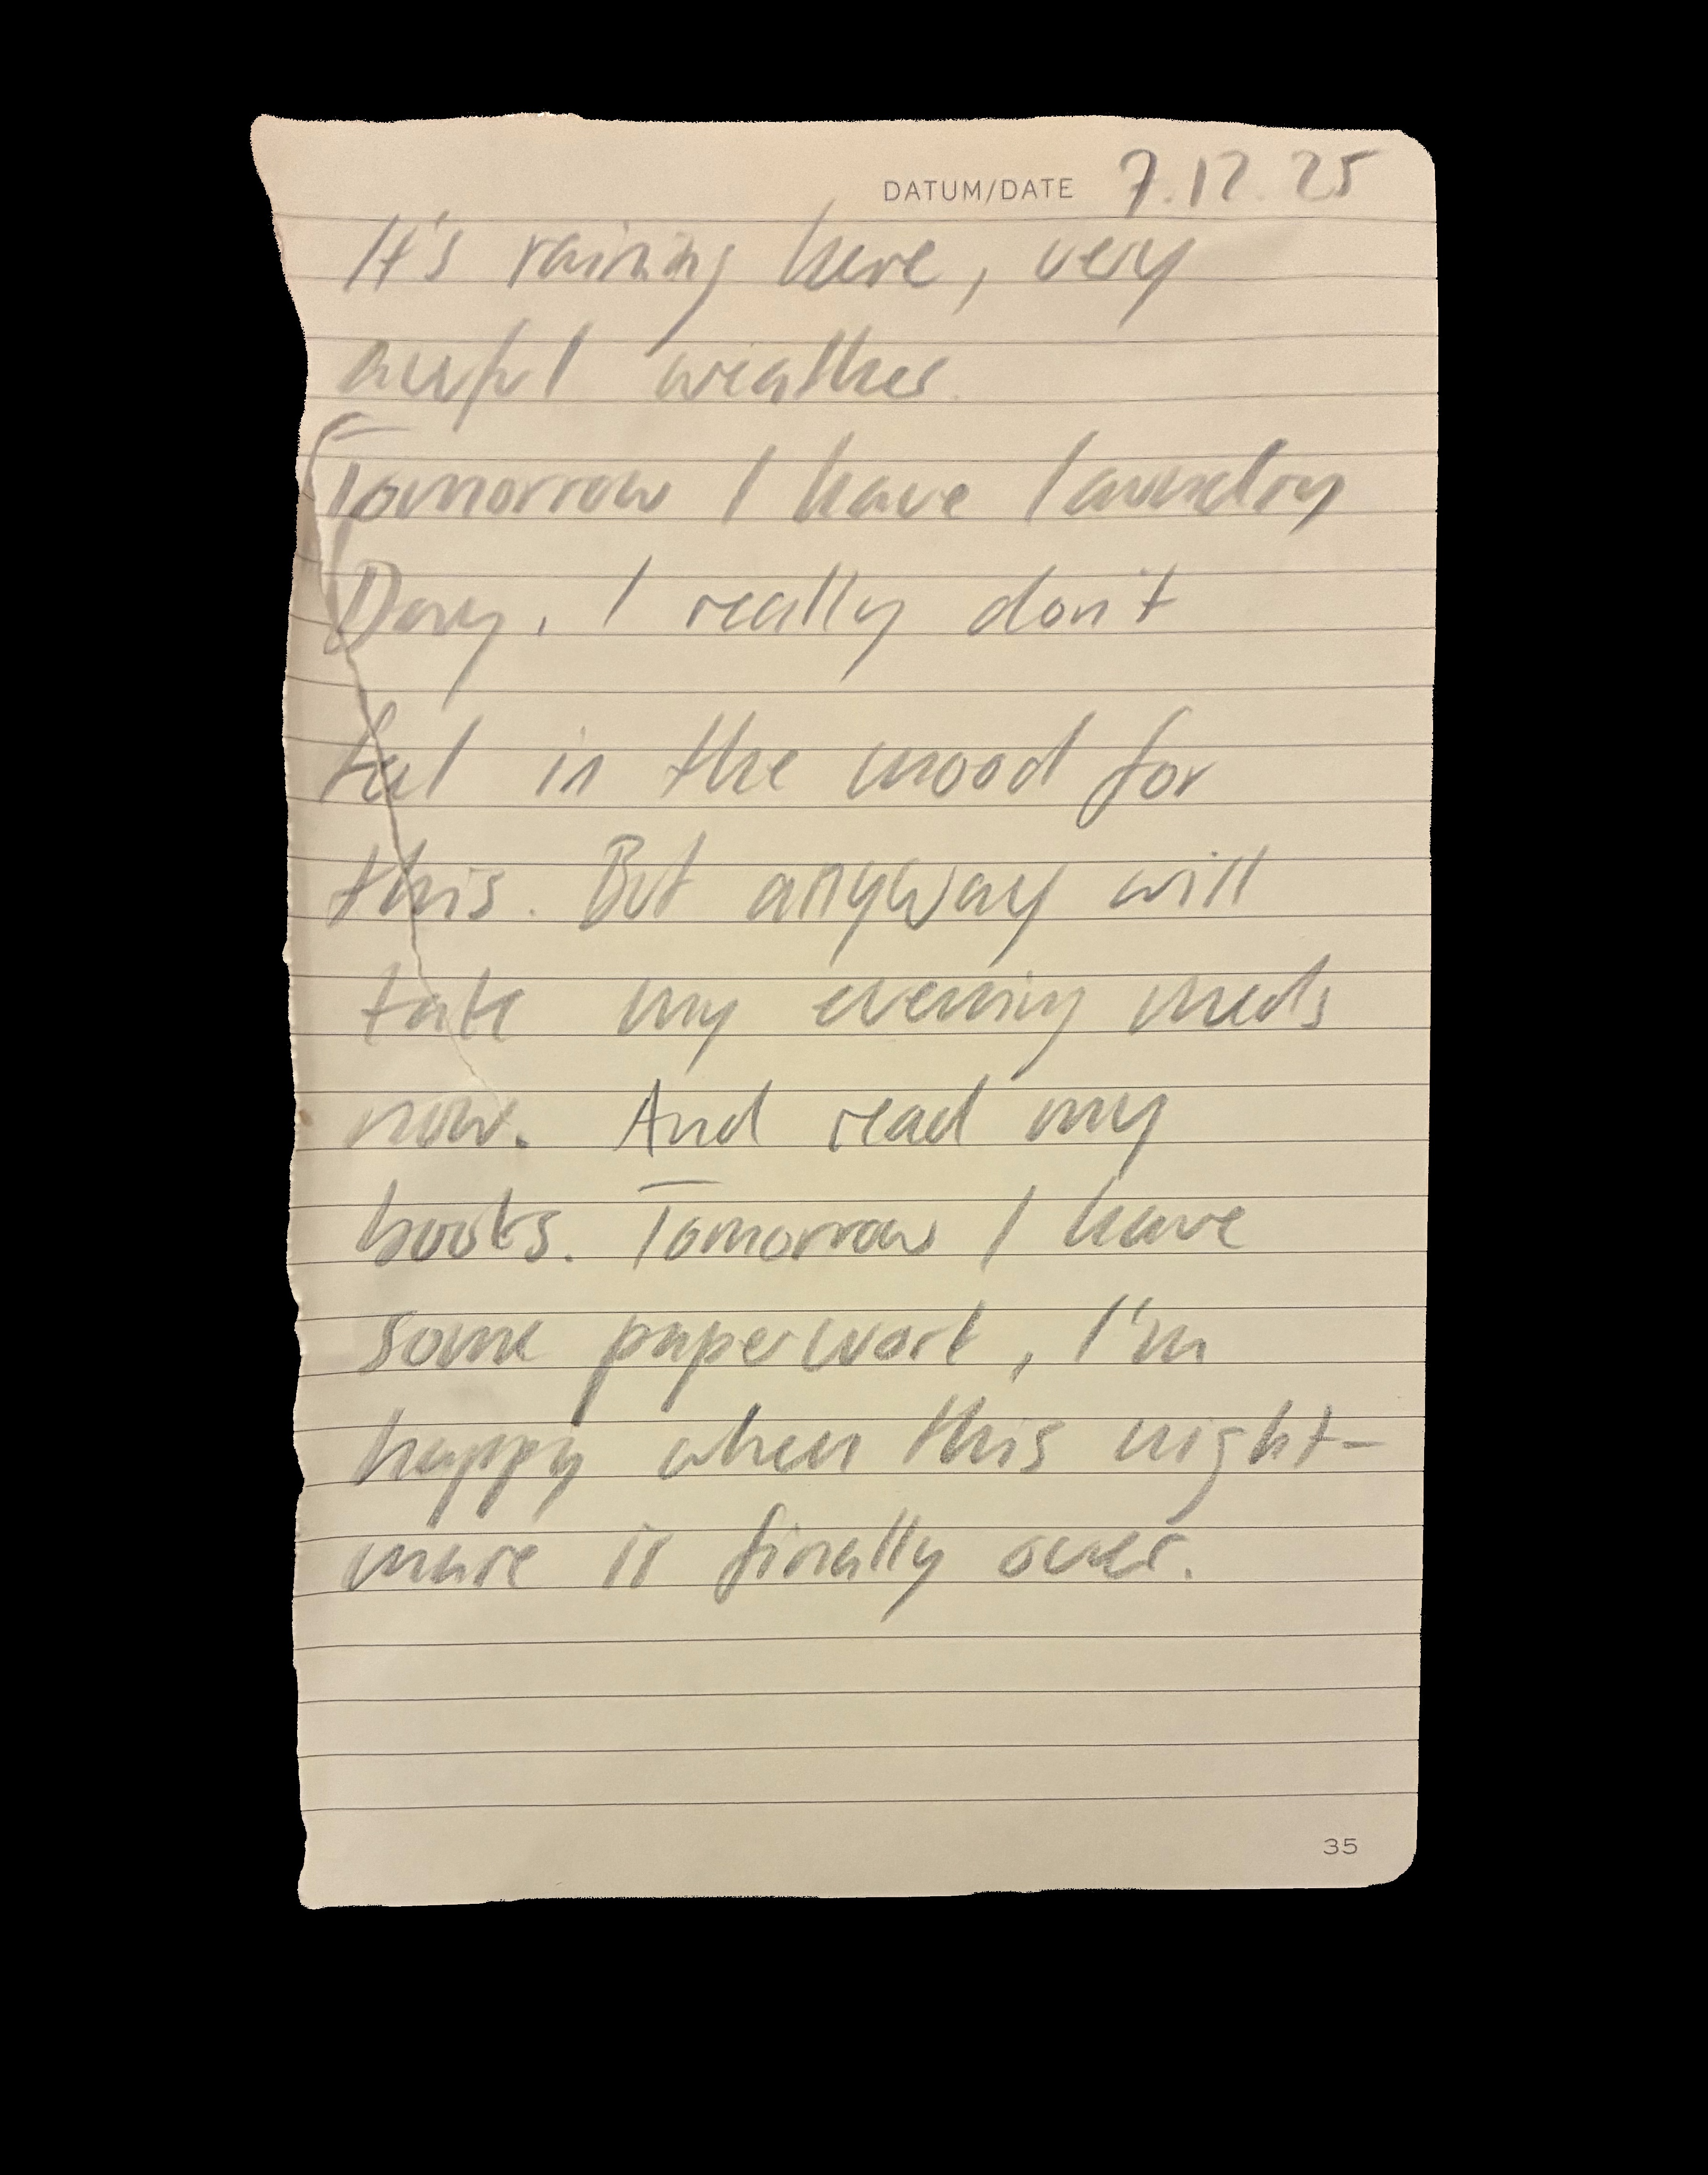 DATUM/DATE 7.12.25
It's raining here, very
awful weather.
Tomorrow I have laundry
Day, I really don't
feel in the mood for
this. But anyway will
take my evening meds
now. And read my
books. Tomorrow I have
some paperwork, I'm
happy when this night-
mare is finally over.
35